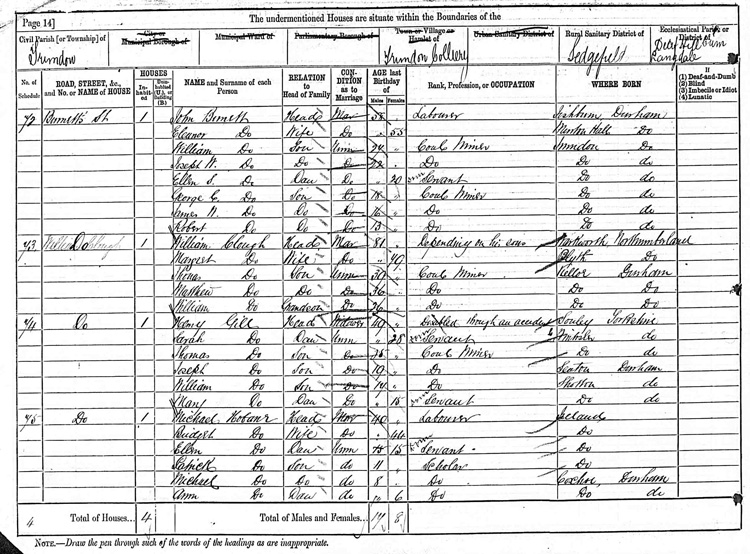 The undermentioned Houses are situate within Boundaries of the
Page 14]
Civil Parish [or Township] of
Trimdon
City or
Municipal Borough of
Municipal Ward of
Parliamentary Borough of
Town or Village or
Hamlet of
Trimdon Colliery
Urban Sanitary District of
Rural Sanitary District of
Sedgefield
Ecclesiastical Parish or
District of
No. of Schedule
ROAD, STREET, &c., and No. or NAME of HOUSE
HOUSES
Inhabited
Uninhabited (U.), or Building (B.)
NAME and Surname of each Person
RELATION to Head of Family
CONDITION as to Marriage
AGE last Birthday of
Males
Females
Rank, Profession, or OCCUPATION
WHERE BORN
If
(1) Deaf-and-Dumb
(2) Blind
(3) Imbecile or Idiot
(4) Lunatic
72 Barnett's St 1 John Head Mar 58 Labourer Durham
Eleanor Do Wife Do 55 Hall Do
William Do Son Unm 24 Coal Miner Trimdon Do
Joseph W. Do Do Do 22 Do Do do
Ellen S. Do Dau Do 20 Servant Do do
George E. Do Son Do 18 Coal Miner Do do
James N. Do Do Do 16 Do Do do
Robert Do Do Do 13 Do Do do
73 Do 1 William Clough Head Mar 81 Depending on his sons Warkworth Northumberland
Margret Do Wife Do 49 Blyth Do
Thomas Do Son Unm 39 Coal Miner Durham
Matthew Do Do Do 36 Do Do Do
William Do Grandson Do 26 Do Do Do
74 Do 1 Henry Gill Head Widower 49 Disabled through an accident Yorkshire
Sarah Do Dau Unm 28 Servant do
Thomas Do Son Do Coal Miner Do do
Joseph Do Son Do 19 Do Seaton Durham
William Do Son Do 17 Do Shotton do
Mary Do Dau Do 15 Servant Do do
75 Do 1 Michael Head Mar 40 Labourer Ireland
Bridget Do Wife Do 44 Do
Ellen Do Dau Unm 15 Servant Do
Patrick Do Son do 11 Scholar Do
Michael Do Do do 8 Do Coxhoe, Durham
Ann Do Dau do 6 Do Do do
4 Total of Houses... 4 Total of Males and Females... 17 8
NOTE.—Draw the pen through such of the words of the headings as are inappropriate.